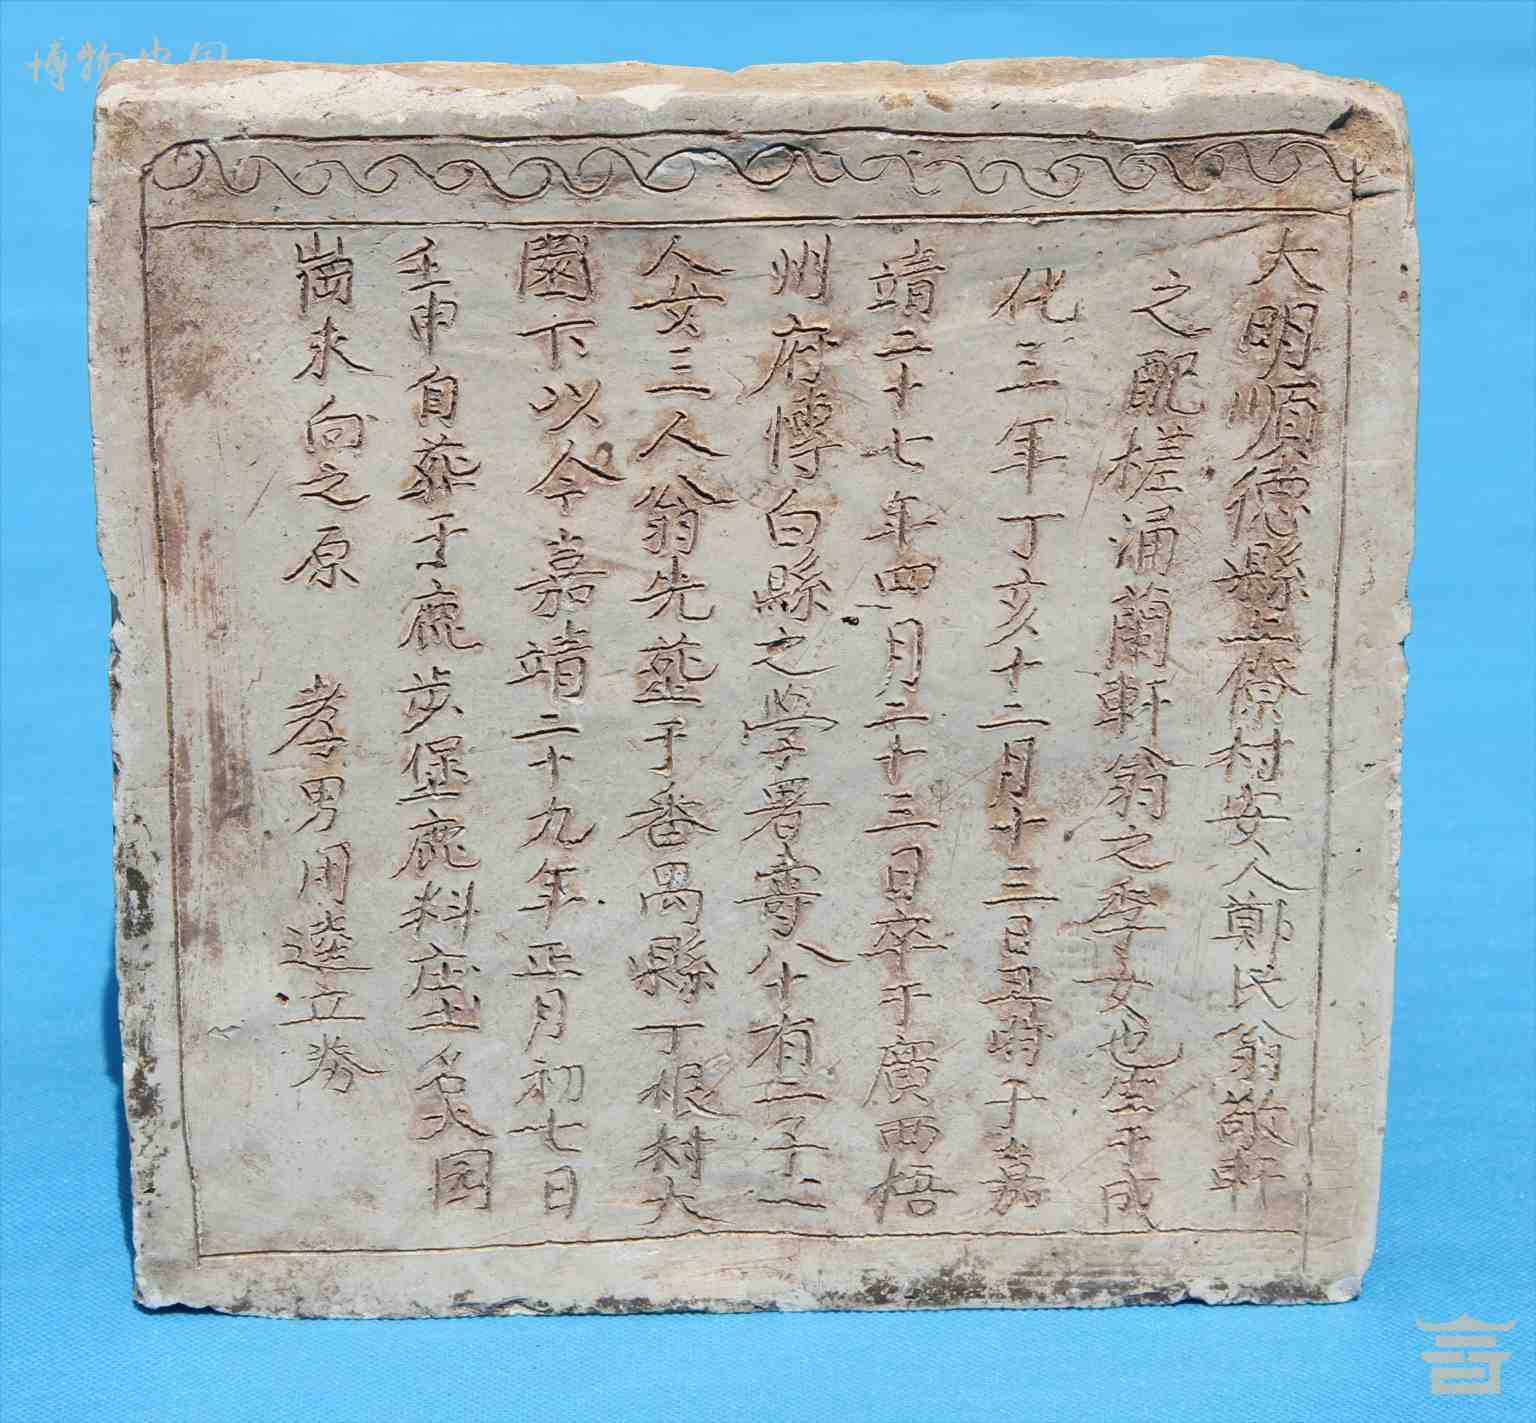 大明順德縣上僚村安人鄭民翁敬軒
之配槎涌蘭軒翁之季女也生于成
化三年丁亥十二月十三日丑時于嘉
靖二十七年四月二十三日卒于廣西梧
州府博白縣之學署壽八十有二子一
人女三人翁先葬于番禺縣丁根村大
園下以今嘉靖二十九年正月初七日
壬申自葬于鹿步堡鹿料座土名大园
崗來向之原 孝男用達立
博物中国